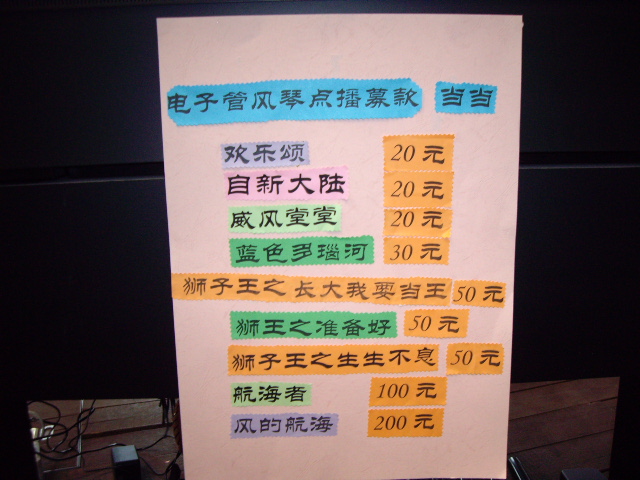 电子管风琴点播募款 当当
欢乐颂 20元
自新大陆 20元
威风堂堂 20元
蓝色多瑙河 30元
狮子王之长大我要当王 50元
狮王之准备好 50元
狮子王之生生不息 50元
航海者 100元
风的航海 200元